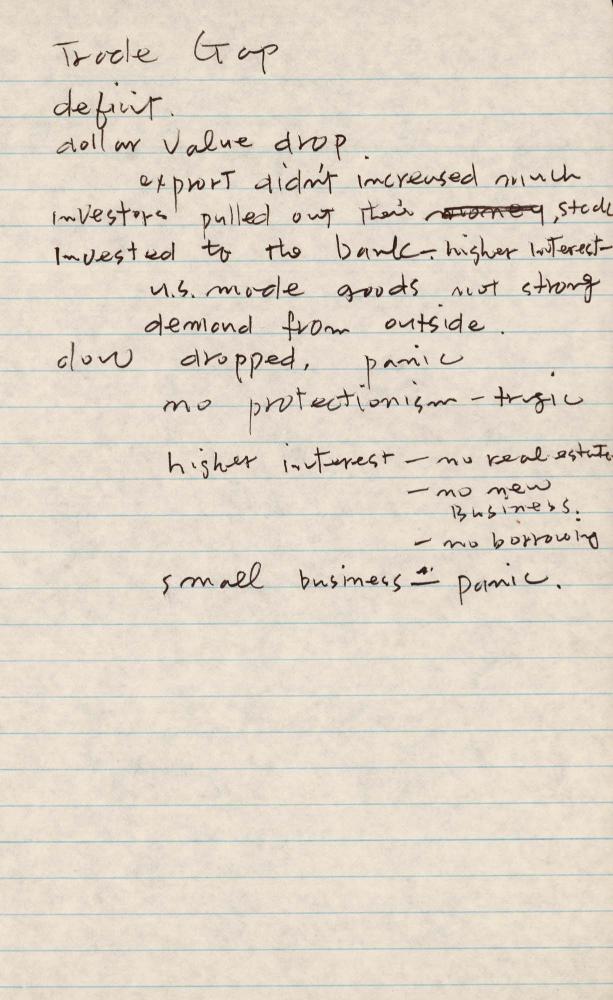 Trade Gap
deficit.
dollar value drop.
export didn't increased much
investors pulled out their money, stock
Invested to the bank - higher interest
U.S. made goods not strong
demand from outside.
dow dropped, panic
no protectionism - tragic
higher interest - no real estate
- no new
Business.
- no borrowing
small business - panic.